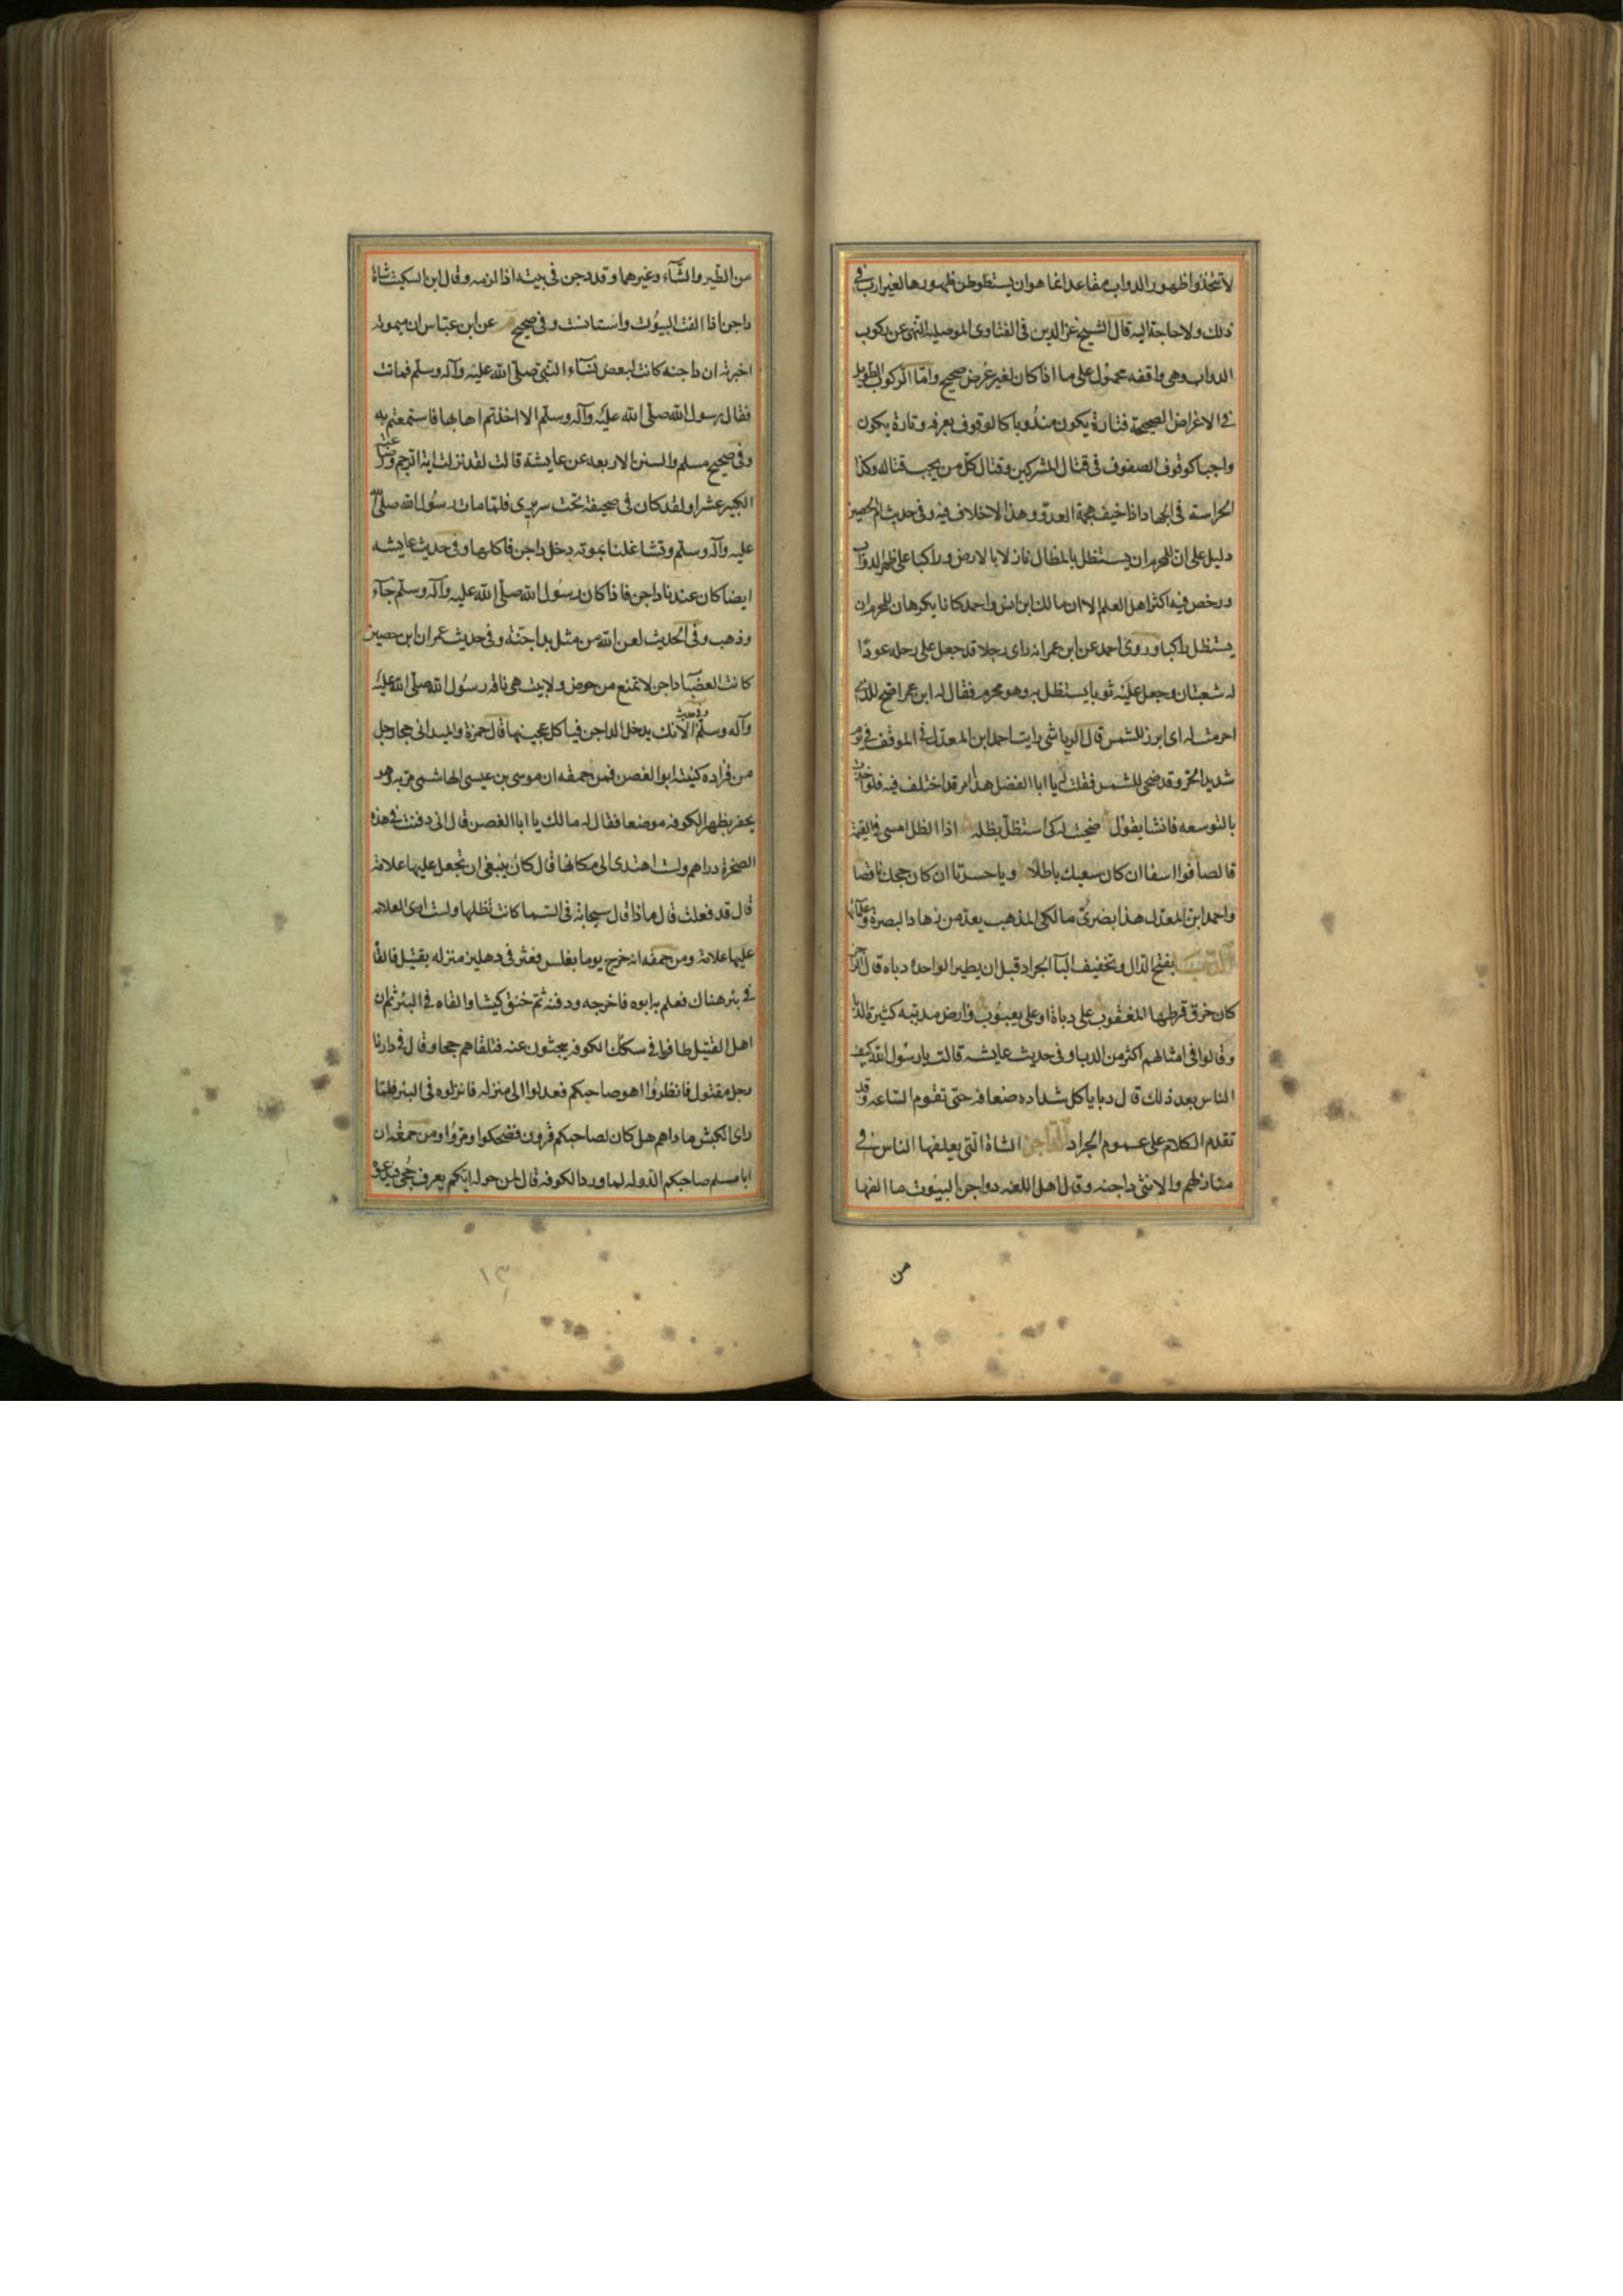 لا تتخذوا ظهور الدواب مقاعد انما هو ان يستوطن ظهورها لغير ارب في
ذلك ولا حاجة اليه قال الشيخ عز الدين في الفتاوى الموصليه النهى عن ركوب
الدواب وهى واقفه محمول على ما اذا كان لغير غرض صحيح واما الركوب الطويل
في الاغراض الصحيحة فتارة يكون مندوبا كالوقوف بعرفه وتارة يكون
واجبا كوقوف الصفوف في قتال المشركين وقتال كل من يجب قتاله وكذا
الحراسة في الجهاد اذا خيف هجمة العدو وهذا لا خلاف فيه وفى حديث ام الحصين
دليل على ان للمحرم ان يستظل بالمظال نازلا بالارض وراكبا على ظهر الدواب
ورخص فيه اكثر اهل العلم الا ان مالك ابن انس واحمد كانا يكرهان للمحرم ان
يستظل راكبا وروى احمد عن ابن عمر انه راى رجلا قد جعل على رحله عودا
له شعبتان وجعل عليه ثوبا يستظل به وهو محرم فقال له ابن عمر اضح للذى
احرمت له اى ابرز للشمس قال الرياشى رايت احمد ابن المعدل في الموقف في يوم
شديد الحر وقد ضحى للشمس فقلت له يا ابا الفضل هذا امر قد اختلف فيه فلو اخذت
بالتوسعه فانشا يقول ضحيت له كى استظل بظله اذا الظل امسى في القيمة
قالصا فوا اسفا ان كان سعيك باطلا ويا حسرتا ان كان حجك ناقصا
واحمد ابن المعدل هذا بصرى مالكى المذهب يعد من زهاد البصرة وعلمائها
بفتح الدال وتخفيف البآ الجراد قبل ان يطير الواحدة دباه قال الراجز
كان خوق قرطها المعقوب على دباة او على يعسوب وارض مدبيه كثيرة الدبا
وقالوا في امثالهم اكثر من الدبا وفى حديث عايشه قالت يا رسول الله كيف
الناس بعد ذلك قال دبا ياكل شداده ضعافه حتى تقوم الساعه وقد
تقدم الكلام على عموم الجراد الداجن الشاة التى يعلفها الناس في
منازلهم والانثى داجنه وقال اهل اللغه دواجن البيوت ما الفها
من
من الطير والشآء وغيرهما وقد دجن في بيته اذا لزمه وقال ابن السكيت شاة
داجن اذا الفت البيوت واستانست وفى صحيح عن ابن عباس ان ميمونه
اخبرته ان داجنه كانت لبعض نسآء النبى صلى الله عليه وآله وسلم فماتت
فقال رسول الله صلى الله عليه وآله وسلم الا اخذتم اهابها فاستمتعتم به
وفى صحيح مسلم والسنن الاربعه عن عايشة قالت لقد نزلت اية الرجم ورضاعة
الكبير عشرا ولقد كان في صحيفة تحت سريرى فلما مات رسول الله صلى الله
عليه وآله وسلم وتشاغلنا بموته دخل داجن فاكلها وفى حديث عايشه
ايضا كان عندنا داجن فاذا كان رسول الله صلى الله عليه وآله وسلم جآء
وذهب وفى الحديث لعن الله من مثل بداجنة وفى حديث عمران ابن حصين
كانت العضبآ داجن لا تمنع من حوض ولا بيت هى ناقة رسول الله صلى الله عليه
وآله وسلم وفى حديث الافك يدخل الداجن فياكل عجينها قال حمزة والميدانى جحا رجل
من فزاره كنيته ابو الغصن فمن حمقه ان موسى بن عيسى الهاشمى مر به وهو
يحفر بظهر الكوفه موضعا فقال له مالك يا ابا الغصن قال انى دفنت في هذه
الصخرة دراهم ولست اهتدى الى مكانها قال كان ينبغى ان تجعل عليها علامة
قال قد فعلت قال ماذا قال سحابة في السما كانت تظلها ولست ارى العلامه
عليها علامة ومن حمقه انه خرج يوما بغلس فعثر في دهليز منزله بقتيل فالقاه
في بئر هناك فعلم به ابوه فاخرجه ودفنه ثم خنق كبشا والقاه في البئر ثم ان
اهل القتيل طافوا في سكك الكوفه يبحثون عنه فتلقاهم جحا وقال في دارنا
رجل مقتول فانظروا اهو صاحبكم فعدلوا الى منزله فانزلوه في البئر فلما
راى الكبش ناداهم هل كان لصاحبكم قرون فضحكوا ومروا ومن حمقه ان
ابا مسلم صاحبكم الدوله لما ورد الكوفه قال لمن حوله ايكم يعرف جحى